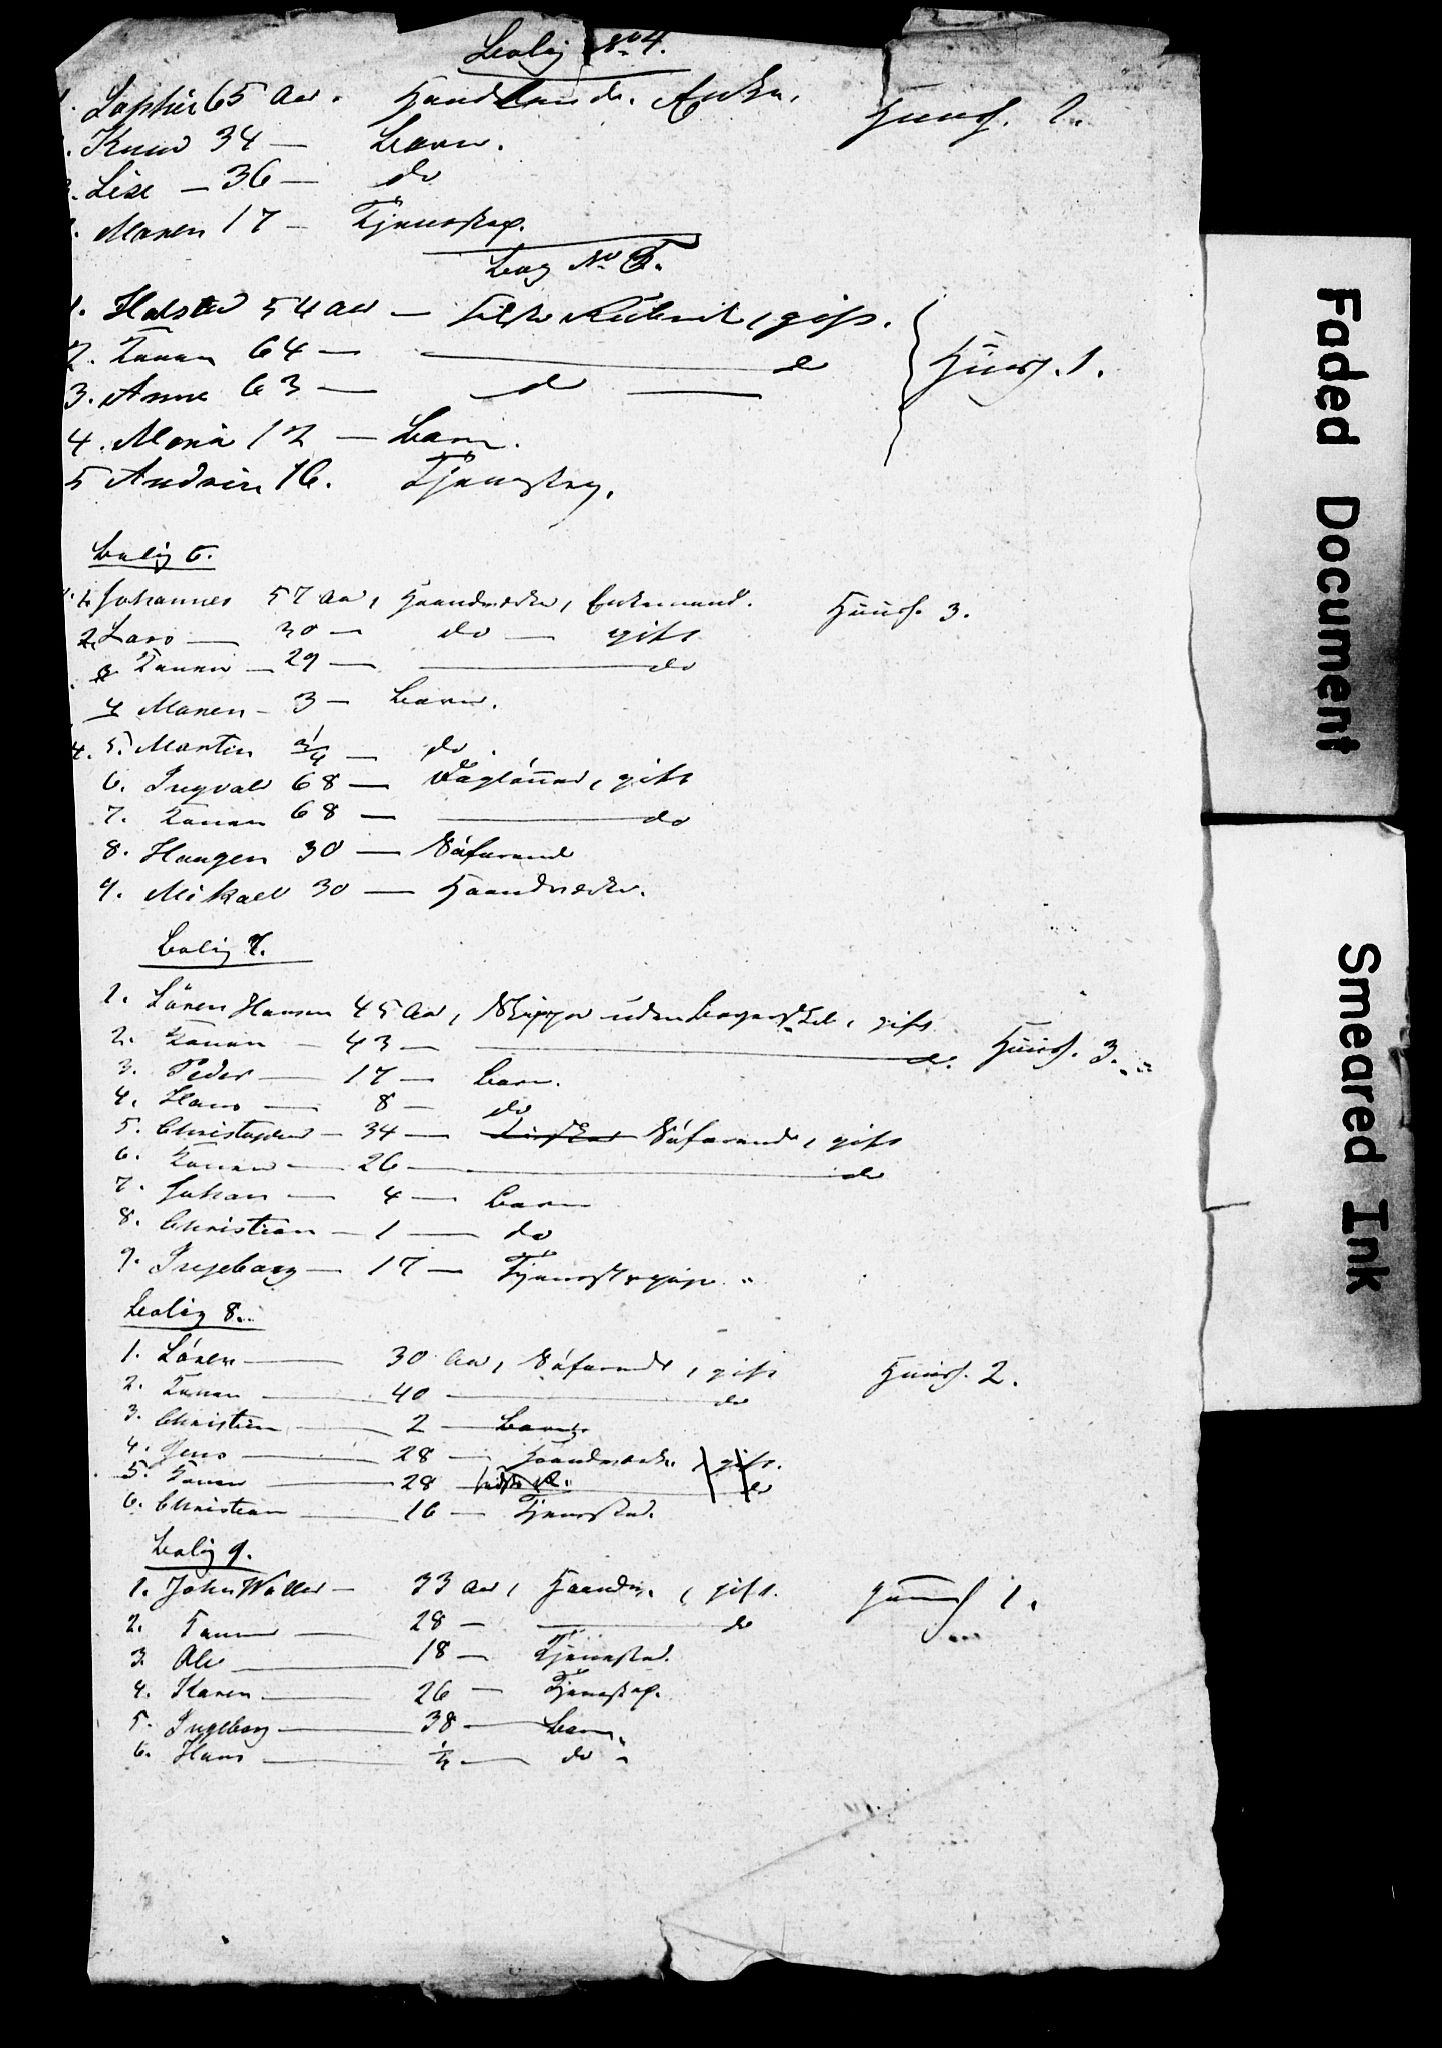 Bolig No 4.
1. Sophie 65 Aar. Enke. Huush. 2.
2. Knud 34 — Barn.
3. Lise — 36 — do
4. Maren 17 — Tjenestep.
Bog No 5.
1. Halstad 54 Aar — gift.
2. Konen 64 — do
3. Anne 63 — do — Huush. 1.
4. Maria 12 — Barn.
5 Andrine 16. Tjenestep.
Bolig 6.
1. Johannes 57 Aar, Haandværker, Enkemand. Huush. 3.
2. Lars — 30 — do — gift
3 Konen — 29 — do
4 Maren — 3 — Barn.
5. Martin 3/4 — do.
6. Ingvald 68 — Daglönner, gift
7. Konen 68 — do
8. Haagen 30 — Söfarende
9. Mikael 30 — Haandværker.
Bolig 7.
1. Sören Hansen 45 Aar, Skipper uden gift
2. Konen — 43 — do. Huush. 3.
3. Peder — 17 — Barn.
4. Hans — 8 — do
5. Christopher — 34 — Söfarende, gift
6. Konen — 26 — do
7. Johan — 4 — Barn
8. Christian — 1 — do
9. Ingeborg — 17 — Tjenestepige
Bolig 8.
1. Sören — 30 Aar, Söfarende, gift Huush. 2.
2. Konen — 40 — do
3. Christian — 2 — Barn.
4. Jens — 28 — Haandværker, gift.
5. Konen — 28 — do
6. Christian — 16 — Tjenestk.
Bolig 9.
1. John Waller — 33 Aar, Haandv., gift. Huush 1.
2. Konen — 28 — do
3. Ole — 18 — Tjenestk.
4. Karen — 26 — Tjenestep.
5. Ingeborg — 38 — Barn
6. Hans — 1/4 — do
Faded Document
Smeared Ink